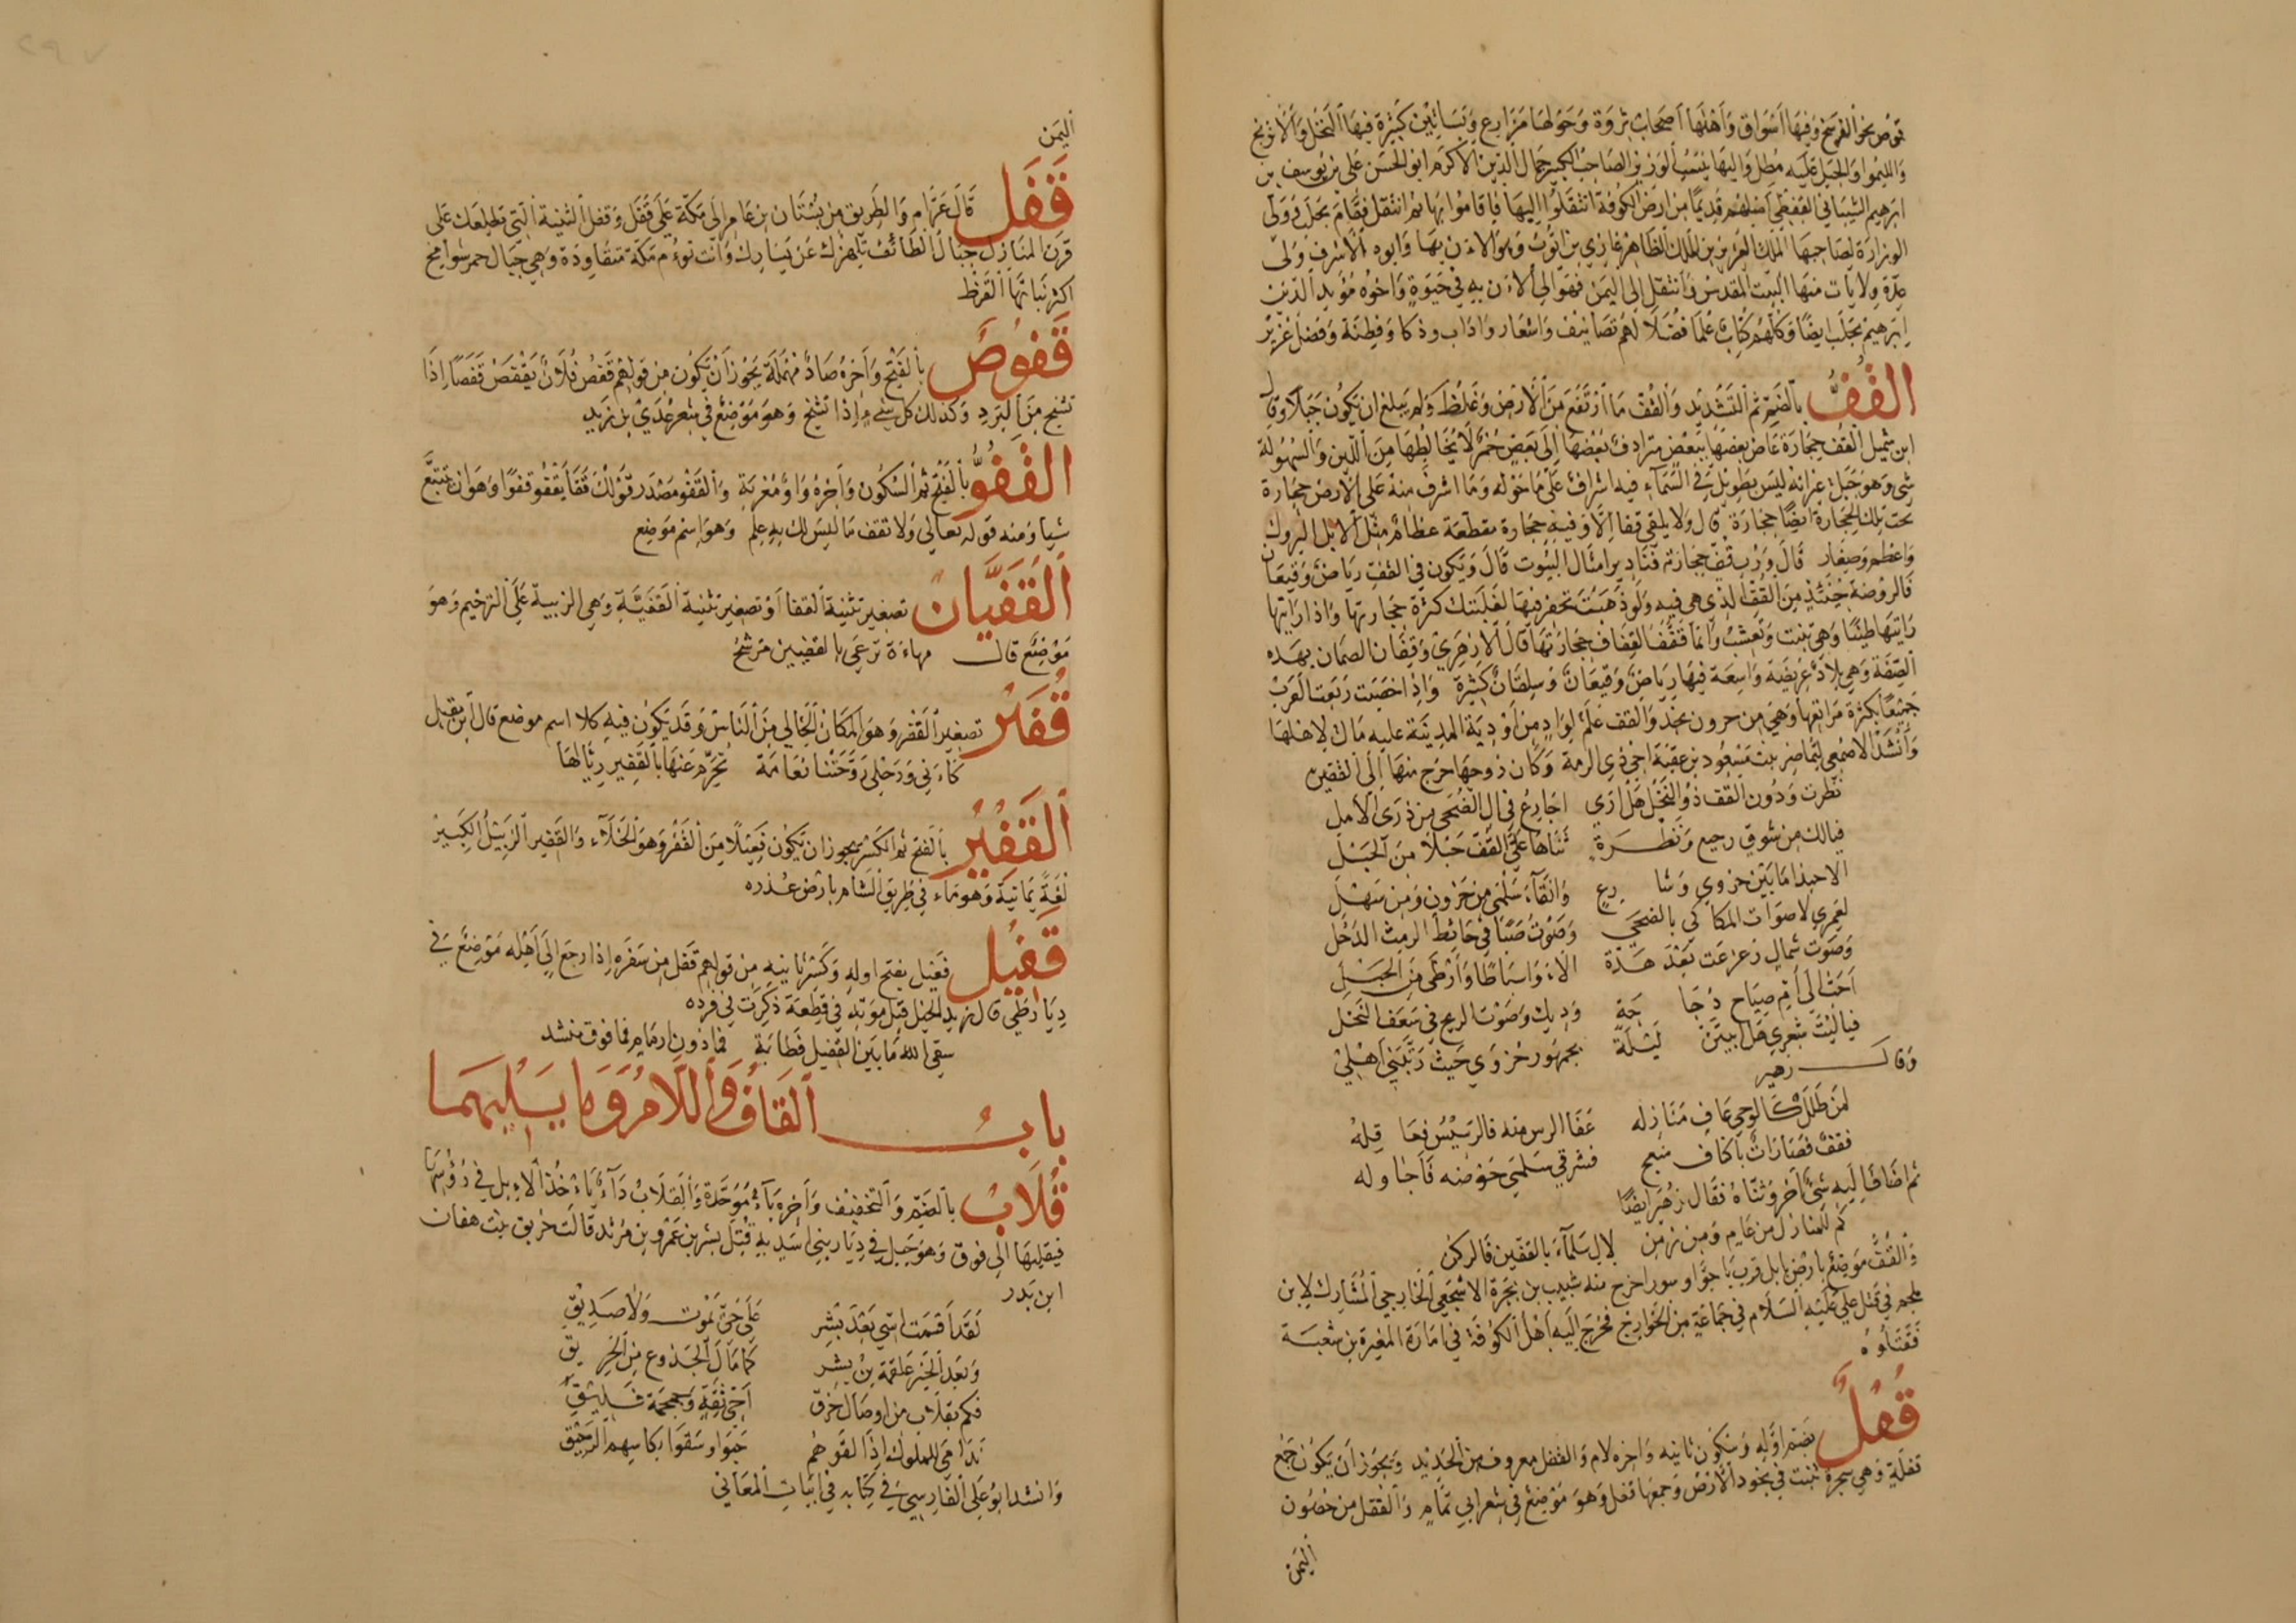 قوص نحو الفرسخ وفيها أسواق وأهلها أصحاب ثروة وحولها مزارع وبساتين كثيرة فيها النخل والأترنج
والليموا والجبل عليه مطل واليها ينسب الوزير الصاحب الكبير جمال الدين الأكرم ابو الحسن علي بن يوسف بن
ابرهيم الشيباني القفطي أصلهم قديما من ارض الكوفة انتقلوا إليها فاقاموا بها ثم انتقل فقام بحلب وولي
الوزارة لصاحبها الملك العزيز بن الملك الظاهر غازي بن ايوب وهو الآن بها وابوه الأشرف ولي
عدة ولايات منها البيت المقدس وانتقل إلى اليمن فهو إلى الآن به في حيوة واخوه مؤيد الدين
إبرهيم بحلب ايضا وكلهم كتاب علما فضلا لهم تصانيف واشعار واداب وذكا وفطنة وفضل غزير
القف بالضم ثم التشديد والقف ما ارتفع من الارض وغلظ ولم يبلغ ان يكون جبلا وقال
ابن شميل القف حجارة غاص بعضها ببعض مترادف بعضها إلى بعض حمر لا يخالطها من اللين والسهولة
شي وهو جبل غير انه ليس بطويل في السماء فيه اشراف على ما حوله وما اشرف منه على الارض حجارة
تحت تلك الحجارة ايضا حجارة قال ولا يلقى قفا إلا وفيه حجارة متقطعة عظام مثل الابل البروك
واعظم وصغار قال ورب قف حجارته فنادير امثال البيوت قال ويكون في القف رياض وقيعان
فالروضة حينئذ من القف الذي هي فيه ولو ذهبت تحفر فيها لغلبتك كثرة حجارتها واذا رايتها
رايتها طينا وهي تنبت وتعشب وانما قف القفاف حجارتها قال الازهري وقفاف الصمان بهذه
الصفة وهي بلاد عريضة واسعة فيها رياض وقيعان وسلقان كثيرة واذا اخصبت ربعت العرب
جميعا بكثرة مراتعها وهي من حزون نجد والقف علم لواد من اودية المدينة عليه مال لاهلها
وانشد الاصمعي لتماضر بنت مسعود بن عقبة اخي ذي الرمة وكان زوجها خرج منها إلى القفين
نظرت ودون القف ذو النخل هل ارى اجارع في ال الضحى من ذرى الامل
فيالك من شوق رجيع ونظرة ثناها على القف حبلا من الحبل
الا حبذا ما بين حزوي وشارع وانقاء سلمى من حزون ومن سهل
لعمري لاصوات المكاكي بالضحى وصوت صبا في حائط الرمث الدحل
وصوت شمال زعزعت بعد هدة الاء واسباطا وارطى من الحبل
احب إلي من صياح دجاجة وديك وصوت الريح في سعف النخل
فياليت شعري هل ابيتن ليلة بجمهور حزوي حيث ربتني اهلي
وقال زهير
لمن طلل كالوحي عاف منازله عفا الرس منه فالرسيس فعاقله
فقف فصارات باكناف منعج فشرقي سلمى حوضه فاجاوله
ثم اضاف إليه شيا آخر وثناه فقال زهير ايضا
كم للمنازل من عام ومن زمن لال سلماء بالقفين فالركن
والقف موضع بارض بابل قرب باجوا وسورا خرج منه شبيب بن بجرة الاشجعي الخارجي المشارك لابن
ملجم في قتل علي عليه السلام في جماعة من الخوارج فخرج اليه اهل الكوفة في امارة المغيرة بن شعبة
فقتلوه
قفل بضم اوله وسكون ثانيه واخره لام والقفل معروف من الحديد ويجوز ان يكون جمع
قفلة وهي شجرة تنبت في نجود الارض وجمعها قفل وهو موضع في شعر ابي تمام والقفل من حصون
اليمن
اليمن
قفل قال عرام والطريق من بستان بن عامر إلى مكة على قفل وقفل الثنية التي تطلعك على
قرن المنازل جبال الطائف تلهزك عن يسارك وانت تؤم مكة متقاودة وهي جبال حمر شوامخ
اكثر نباتها القرظ
قفوص بالفتح وآخره صاد مهملة يجوز أن يكون من قولهم قفص فلان يقفص قفصا إذا
تشنج من البرد وكذلك كل شيء إذا تشنج وهو موضع في شعر عدي بن زيد
القفو بالفتح ثم السكون وآخره واو معربة والقفو مصدر قولك قفا يقفو قفوا وهو ان يتتبع
شيا ومنه قوله تعالى ولا تقف ما ليس لك به علم وهو اسم موضع
القفيان تصغير تثنية القفا او تصغير تثنية القفية وهي الزبية على الترخيم وهو
موضع قال مهاءة ترعى بالقفيين مرشح
قفير تصغير القفر وهو المكان الخالي من الناس وقد يكون فيه كلا اسم موضع قال ابن مقبل
كاءني ورحلي روحتنا نعامة تخرم عنها بالقفير رئالها
القفير بالفتح ثم الكسر يجوز ان يكون فعيلا من القفر وهو الخلاء والقفير الزبيل الكبير
لغة يمانية وهو ماء في طريق الشام بارض عذره
قفيل فعيل بفتح اوله وكسر ثانيه من قولهم قفل من سفره إذا رجع إلى اهله موضع في
ديار طي قال زيد الخيل قبل موته في قطعة ذكرت في فرده
سقى الله ما بين القفيل فطابة فما دون ارمام فما فوق منشد
باب القاف واللام وما يليهما
قلاب بالضم والتخفيف وآخره باء موحدة والقلاب داء ياءخذ الابل في رؤسها
فيقلبها الى فوق وهو جبل في ديار بني اسد به قتل بشر بن عمرو بن مرثد قالت خرنق بنت هفان
ابن بدر
لقد اقسمت اسى بعد بشر على حي يموت ولا صديق
وبعد الخير علقمة بن بشر كما مال الجذوع من الخريق
فكم بقلاب من اوصال خرق اخي ثقة وجمجمة فليق
ندامى للملوك إذا لقوهم حبوا وسقوا بكاسهم الرحيق
وانشد ابو علي الفارسي في كتابه في ابيات المعاني